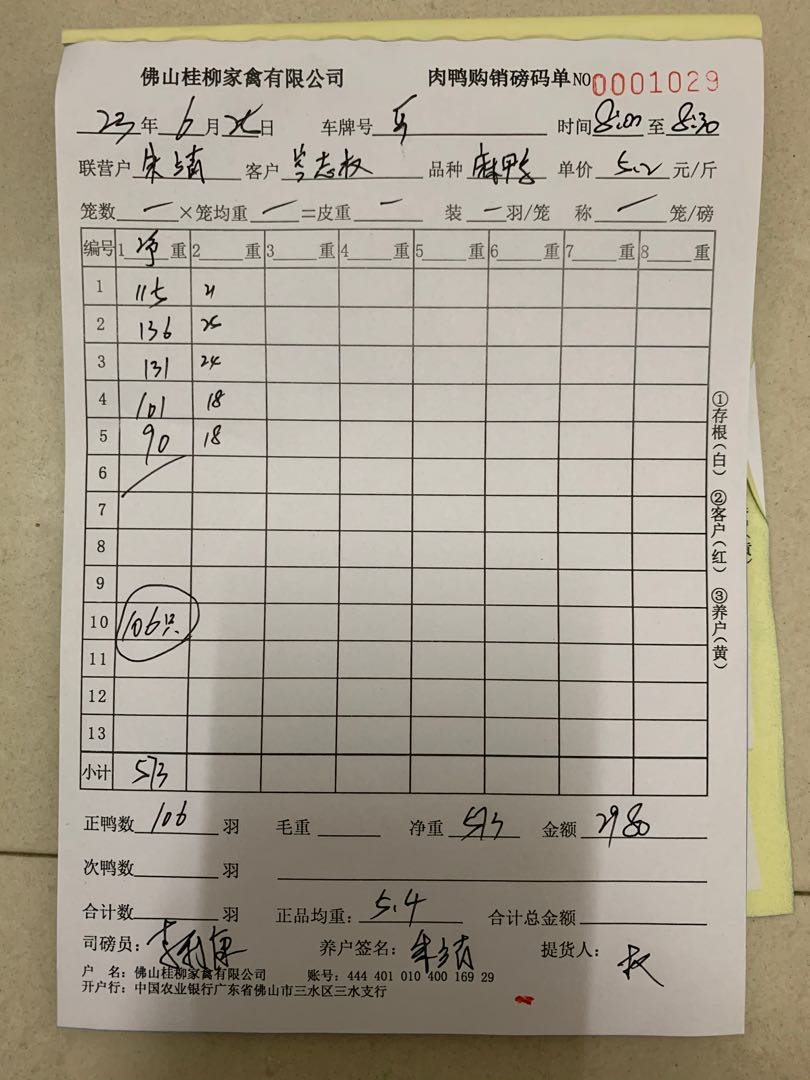 佛山桂柳家禽有限公司 肉鸭购销磅码单 NO 0001029
23年6月25日 车牌号 时间8:00至8:30
联营户 客户 岑志权 品种 麻鸭 单价 5.2 元/斤
笼数 一 ×笼均重 一 =皮重 一 装 一 羽/笼 称 一 笼/磅
编号 1 净 重 2 重 3 重 4 重 5 重 6 重 7 重 8 重
1 115 21
2 136 25
3 131 24
4 101 18
5 90 18
6
7
8
9
10 106只
11
12
13
小计 573
①存根(白) ②客户(红) ③养户(黄)
正鸭数 106 羽 毛重 净重 573 金额 2980
次鸭数 羽
合计数 羽 正品均重: 5.4 合计总金额
司磅员: 养户签名: 提货人: 权
户 名: 佛山桂柳家禽有限公司 账号: 444 401 010 400 169 29
开户行: 中国农业银行广东省佛山市三水区三水支行